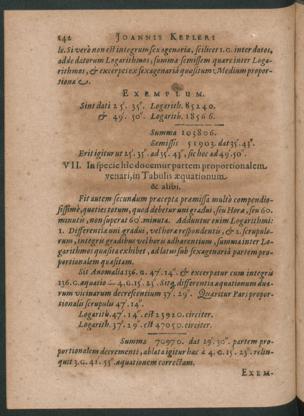 242 IOANNIS KEPLERI
le. Si verò non est integrum sexagenaria, scilicet 1.0. inter datos,
adde datorum Logarithmos, summæ semissem quære inter Loga-
rithmos, & excerpes ex sexagenaria quæsitum Medium propor-
tionale.
EXEMPLVM.
Sint dati 25'. 35". Logarith. 85240.
& 49'. 50". Logarith. 18566.
Summa 103806.
Semissis 51903. dat 35'. 43".
Erit igitur ut 25'. 35". ad 35'. 43", sic hoc ad 49. 50".
VII. In specie hîc docemur partem proportionalem
venari, in Tabulis æquationum.
& alibi.
Fit autem secundum præcepta præmissa multò compendio-
sissimè, quoties totum, quod debetur uni gradui, seu Hora, seu 60.
minutis, non superat 60. minuta. Adduntur enim Logarithmi:
1. Differentiæ uni gradui, vel horæ respondentis, & 2. scrupulo-
rum, integris gradibus vel horis adhærentium, summa inter Lo-
garithmos quæsita exhibet, ad latus sub sexagenaria partem pro-
portionalem quæsitam.
Sit Anomalia 136. G. 47'. 14". & excerpatur cum integris
136. G. æquatio 4. G. 15'. 23". Sitq́; differentia æquationum dua-
rum vicinarum decrescentium 37'. 29". Quæritur Pars propor-
tionalis scrupulis 47'. 14".
Logarith. 47'. 14". est 23920. circiter.
Logarith. 37'. 29". est 47050. circiter.
Summa 70970. dat 29'. 30". partem pro-
portionalem decrementi, ablata igitur hæc à 4. G. 15'. 23". relin-
quit 3. G. 45'. 53". æquationem correctam.
EXEM-